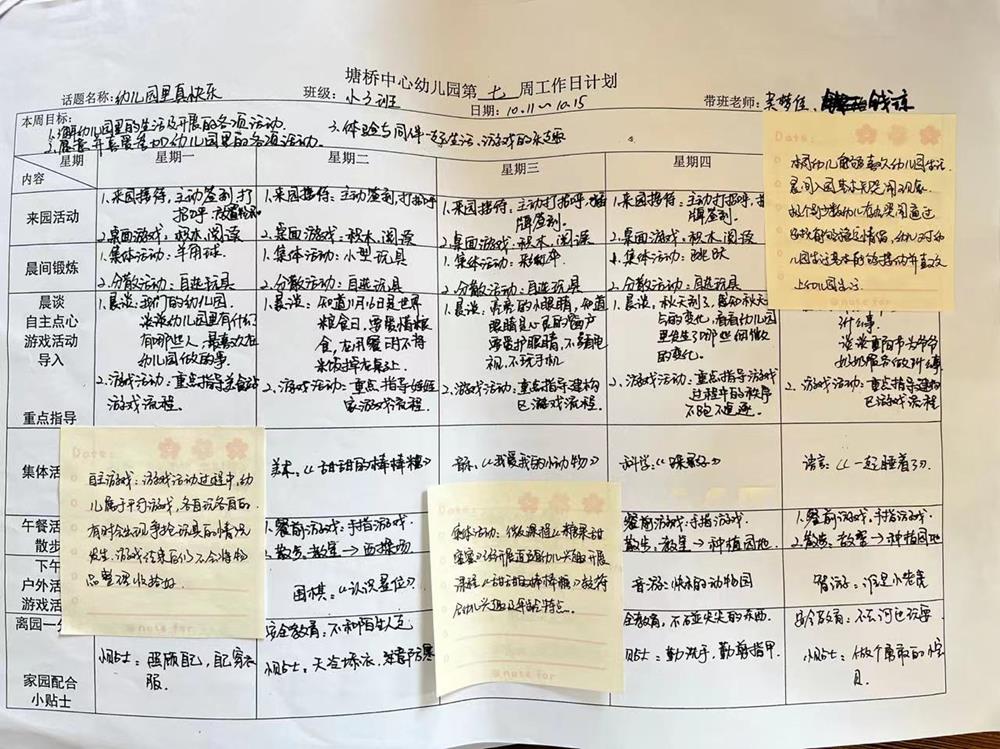 塘桥中心幼儿园第 七 周工作日计划
话题名称:幼儿园里真快乐 班级:小3班 日期:10.11~10.15 带班老师:
本周目标:
1.了解幼儿园里的生活及开展的各项活动. 3.体验与同伴一起生活、游戏的乐趣
2.愿意并喜爱参加幼儿园里的各项活动.
星期 星期一 星期二 星期三 星期四
内容
来园活动
1.来园接待,主动签到,打
招呼,
2.桌面游戏,积木,阅读
1.来园接待,主动打招呼
2.桌面游戏,积木,阅读
1.来园接待,主动打招呼,插
牌签到.
2.桌面游戏,积木,阅读
1.来园接待,主动打招呼,插
牌签到.
2.桌面游戏,积木,阅读
晨间锻炼
1.集体活动:羊角球.
2.分散活动:自选玩具
1.集体活动:小型玩具
2.分散活动:自选玩具
1.集体活动:
2.分散活动:自选玩具
1.集体活动:跳跃
2.分散活动:自选玩具
晨谈
自主点心
游戏活动
导入
重点指导
1.晨谈:我们的幼儿园.
谈谈幼儿园里有什么
有哪些人,最喜欢在
幼儿园做的事.
2.游戏活动:重点指导
游戏流程.
1.晨谈:知道10月16日是世界
粮食日,要爱惜粮
食,在用餐时不将
米饭掉在桌子上.
2.游戏活动:重点指导娃娃
家游戏流程.
1.晨谈:亮亮的小眼睛,知道
眼睛是心灵的窗户
要爱护眼睛,不多看电
视,不玩手机
2.游戏活动:重点指导建构
区游戏流程.
1.晨谈:秋天到了,感知秋天
的变化,看看幼儿园
里发生了哪些细微
的变化.
2.游戏活动:重点指导游戏
过程中的秩序
不跑不追逐.
谈谈重阳节为爷爷
奶奶
2.游戏活动:重点指导建构
区游戏流程
集体活
美术:《甜甜的棒棒糖》
音乐:《我爱我的小动物》
科学:
语言:《一起睡着了》.
午餐活
散步
1.餐前游戏:手指游戏.
2.散步:教室→西操场.
餐前游戏:手指游戏.
散步:教室→种植园地.
1.餐前游戏:手指游戏.
2.散步:教室→种植园地
下午
户外活
游戏活
围棋:《认识星位》
音游:快乐的动物园
智游:谁是小老鼠
离园一分
安全教育:不和陌生人走
全教育:不碰尖尖的东西.
安全教育:不去河边玩耍
家园配合
小贴士
小贴士:照顾自己,
服.
小贴士:天冷添衣,
贴士:勤洗手,勤剪指甲.
小贴士:做个勇敢的小宝
贝.
Date:
本周幼儿能够喜欢幼儿园生活
晨间入园基本无哭闹现象.
a note for
Date:
自主游戏:游戏活动过程中,幼
儿属于平行游戏,各自玩各自的.
有时会出现争抢玩具的情况
发生,游戏结束后们不会将物
品整理收拾好.
a note for
集体活动:微课程《糖果甜
蜜蜜》的开展追随幼儿兴趣开展
课程《甜甜的棒棒糖》较符
合幼儿兴趣及年龄特点.
a note for